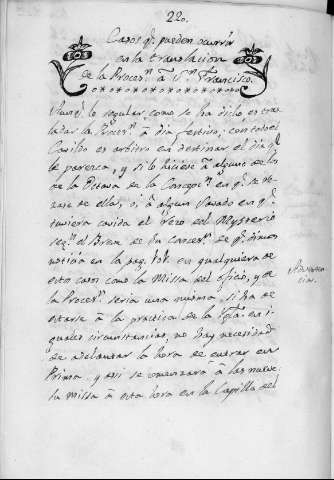 220.
Casos q.e pueden ocurrir
en la translacion
de la Proces.n à S.n Francisco.
Aunq.e lo regular, como se ha dicho es tras
ladar la Proces.n à dia festivo; con todo el
Cavildo es arbitro en destinar el dia q.e
le parezca, y si lo hiciese à alguno de los
de la Octava de la Concepc.n en q.e se re-
zase de ella, ò à algun Savado en q.e
tuviera cavida el Rezo del Mysterio
seg.n el Breve de su Conces.n de q.e dimos
noticia en la pag. 101. en qualquiera de
estos casos como la Missa del oficio, y de
la Proces.n seria una misma, si ha de
estarse à la practica de la Igla. en i-
guales circunstancias, no hay necesidad
de adelantar la hora de entrar en
Prima, y assi se comenzarà à las nueve:
la Missa à esta hora en la Capilla del
Adverten
cias.